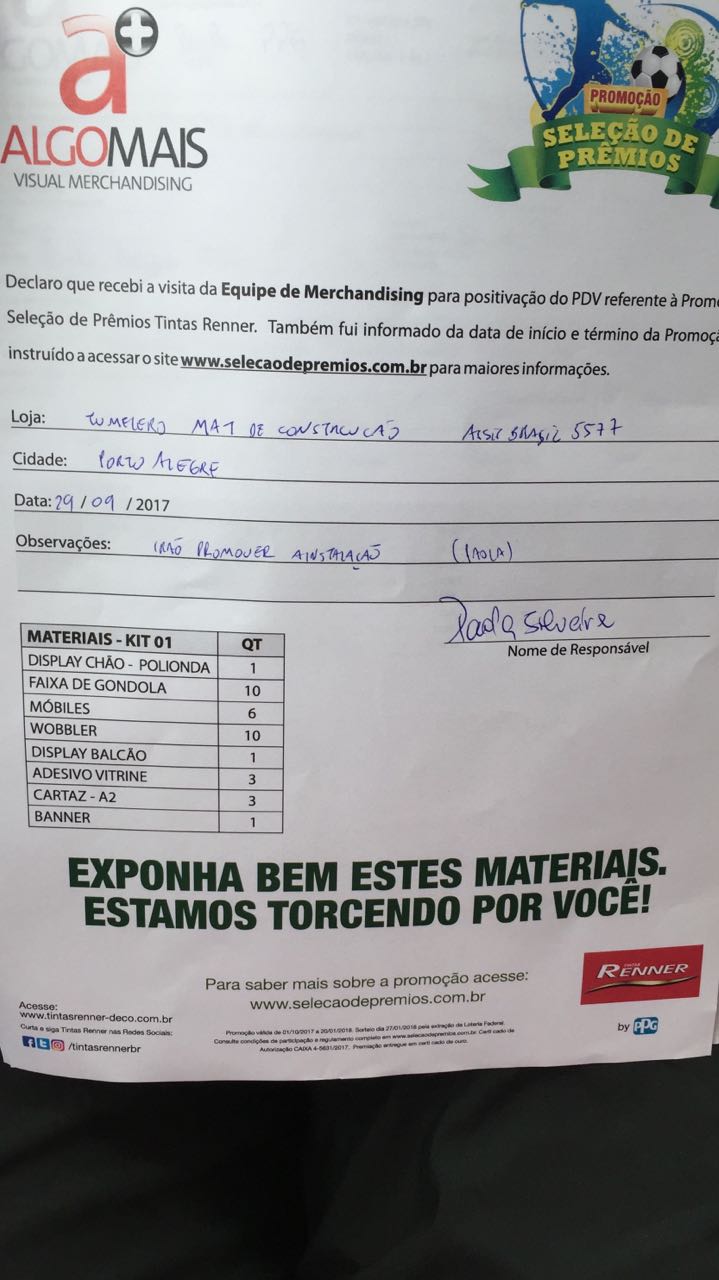 a+
ALGOMAIS
VISUAL MERCHANDISING
PROMOÇÃO
SELEÇÃO DE
PRÊMIOS
Declaro que recebi a visita da Equipe de Merchandising para positivação do PDV referente à Promo
Seleção de Prêmios Tintas Renner. Também fui informado da data de início e término da Promoçã
instruído a acessar o site www.selecaodepremios.com.br para maiores informações.
Loja: TUMELERO MAT DE CONSTRUCÃO ASSIS BRASIL 5577
Cidade: PORTO ALEGRE
Data: 29 / 09 / 2017
Observações: IRÃO PROMOVER A INSTALAÇÃO (PAOLA)
Paola Silveira
Nome de Responsável
MATERIAIS - KIT 01 QT
DISPLAY CHÃO - POLIONDA 1
FAIXA DE GONDOLA 10
MÓBILES 6
WOBBLER 10
DISPLAY BALCÃO 1
ADESIVO VITRINE 3
CARTAZ - A2 3
BANNER 1
EXPONHA BEM ESTES MATERIAIS.
ESTAMOS TORCENDO POR VOCÊ!
Para saber mais sobre a promoção acesse:
www.selecaodepremios.com.br
TINTAS
RENNER
by PPG
Acesse:
www.tintasrenner-deco.com.br
Curta e siga Tintas Renner nas Redes Sociais:
/tintasrennerbr
Promoção válida de 01/10/2017 a 20/01/2018. Sorteio dia 27/01/2018 pela extração da Loteria Federal.
Consulte condições de participação e regulamento completo em www.selecaodepremios.com.br. Certi cado de
Autorização CAIXA 4-5631/2017. Premiação entregue em certi cado de ouro.